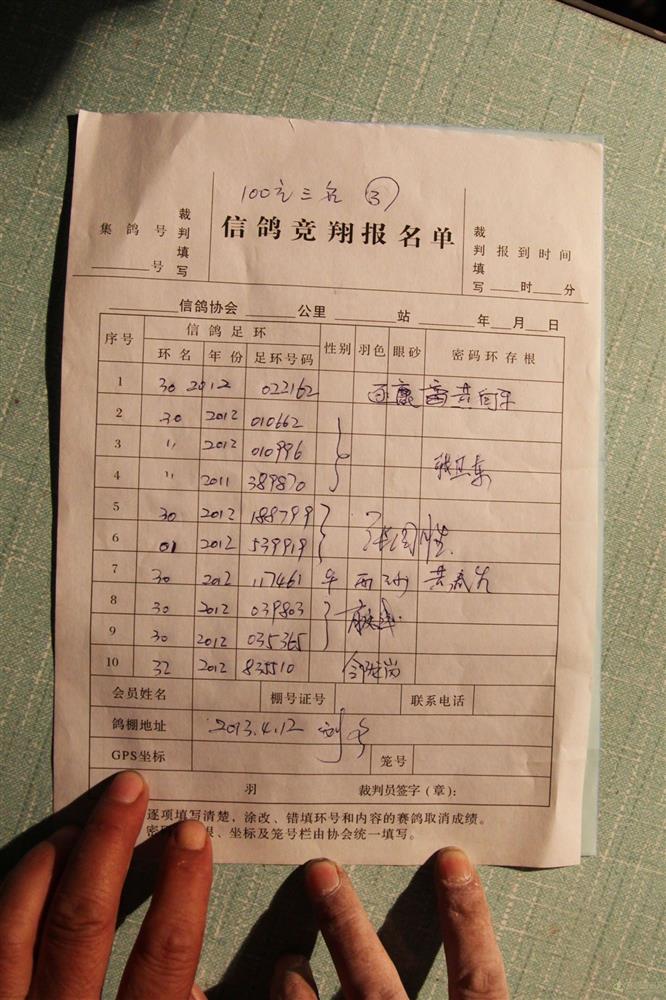 100元三名 ③
集鸽号 裁判填写
号
信鸽竞翔报名单
裁判填写 报到时间
时 分
信鸽协会 公里 站 年 月 日
序号 信鸽足环 性别 羽色 眼砂 密码环存根
环名 年份 足环号码
1 30 2012 022162
2 30 2012 010662
3 〃 2012 010996
4 〃 2011 389870
5 30 2012 188799
6 01 2012 539919
7 30 2012 117461
8 30 2012 039803
9 30 2012 035365
10 32 2012 835510
会员姓名 棚号证号 联系电话
鸽棚地址 2013.4.12
GPS坐标 笼号
羽 裁判员签字(章):
逐项填写清楚,涂改、错填环号和内容的赛鸽取消成绩。
、坐标及笼号栏由协会统一填写。